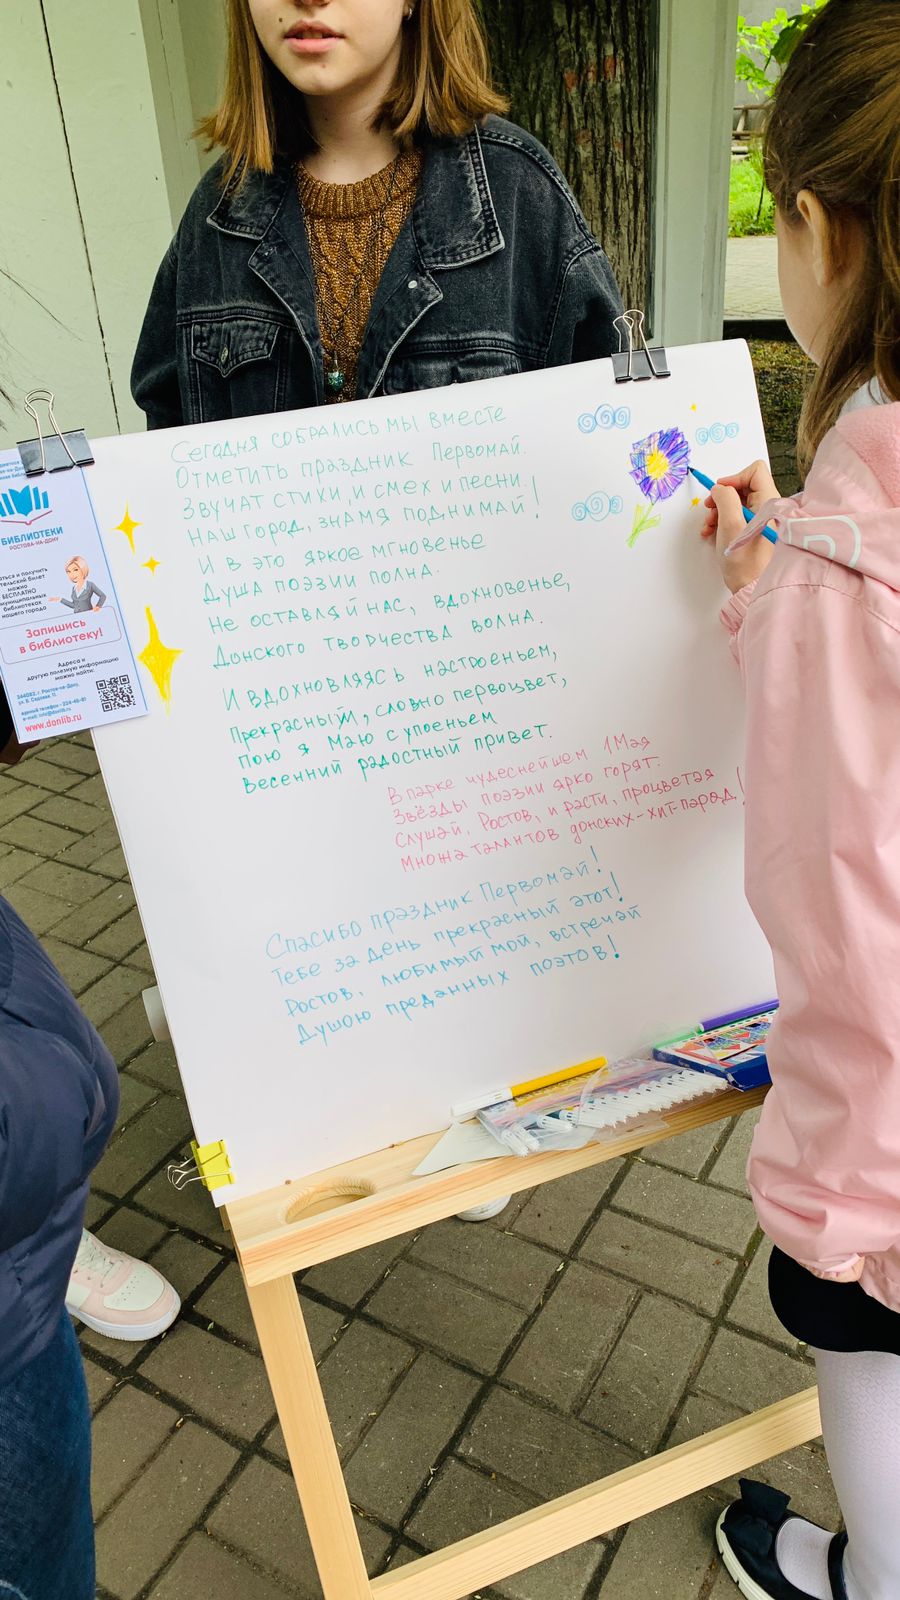 Сегодня собрались мы вместе
Отметить праздник Первомай.
Звучат стихи, и смех и песни.
Наш город, знамя поднимай!
И в это яркое мгновенье
Душа поэзии полна.
Не оставляй нас, вдохновенье,
Донского творчества волна.
И вдохновляясь настроеньем,
Прекрасный, словно первоцвет,
Пою я Маю с упоеньем
Весенний радостный привет.
В парке чудеснейшем 1 Мая
Звёзды поэзии ярко горят.
Слушай, Ростов, и расти, процветая
Множа талантов донских-хит-парад!
Спасибо праздник Первомай!
Тебе за день прекрасный этот!
Ростов, любимый мой, встречай
Душою преданных поэтов!
БИБЛИОТЕКИ
РОСТОВА-НА-ДОНУ
и получить
билет
можно
БЕСПЛАТНО
муниципальных
библиотеках
нашего города
Запишись
в библиотеку!
Адреса и
другую полезную информацию
можно найти:
344082, г. Ростов-на-Дону,
www.donlib.ru